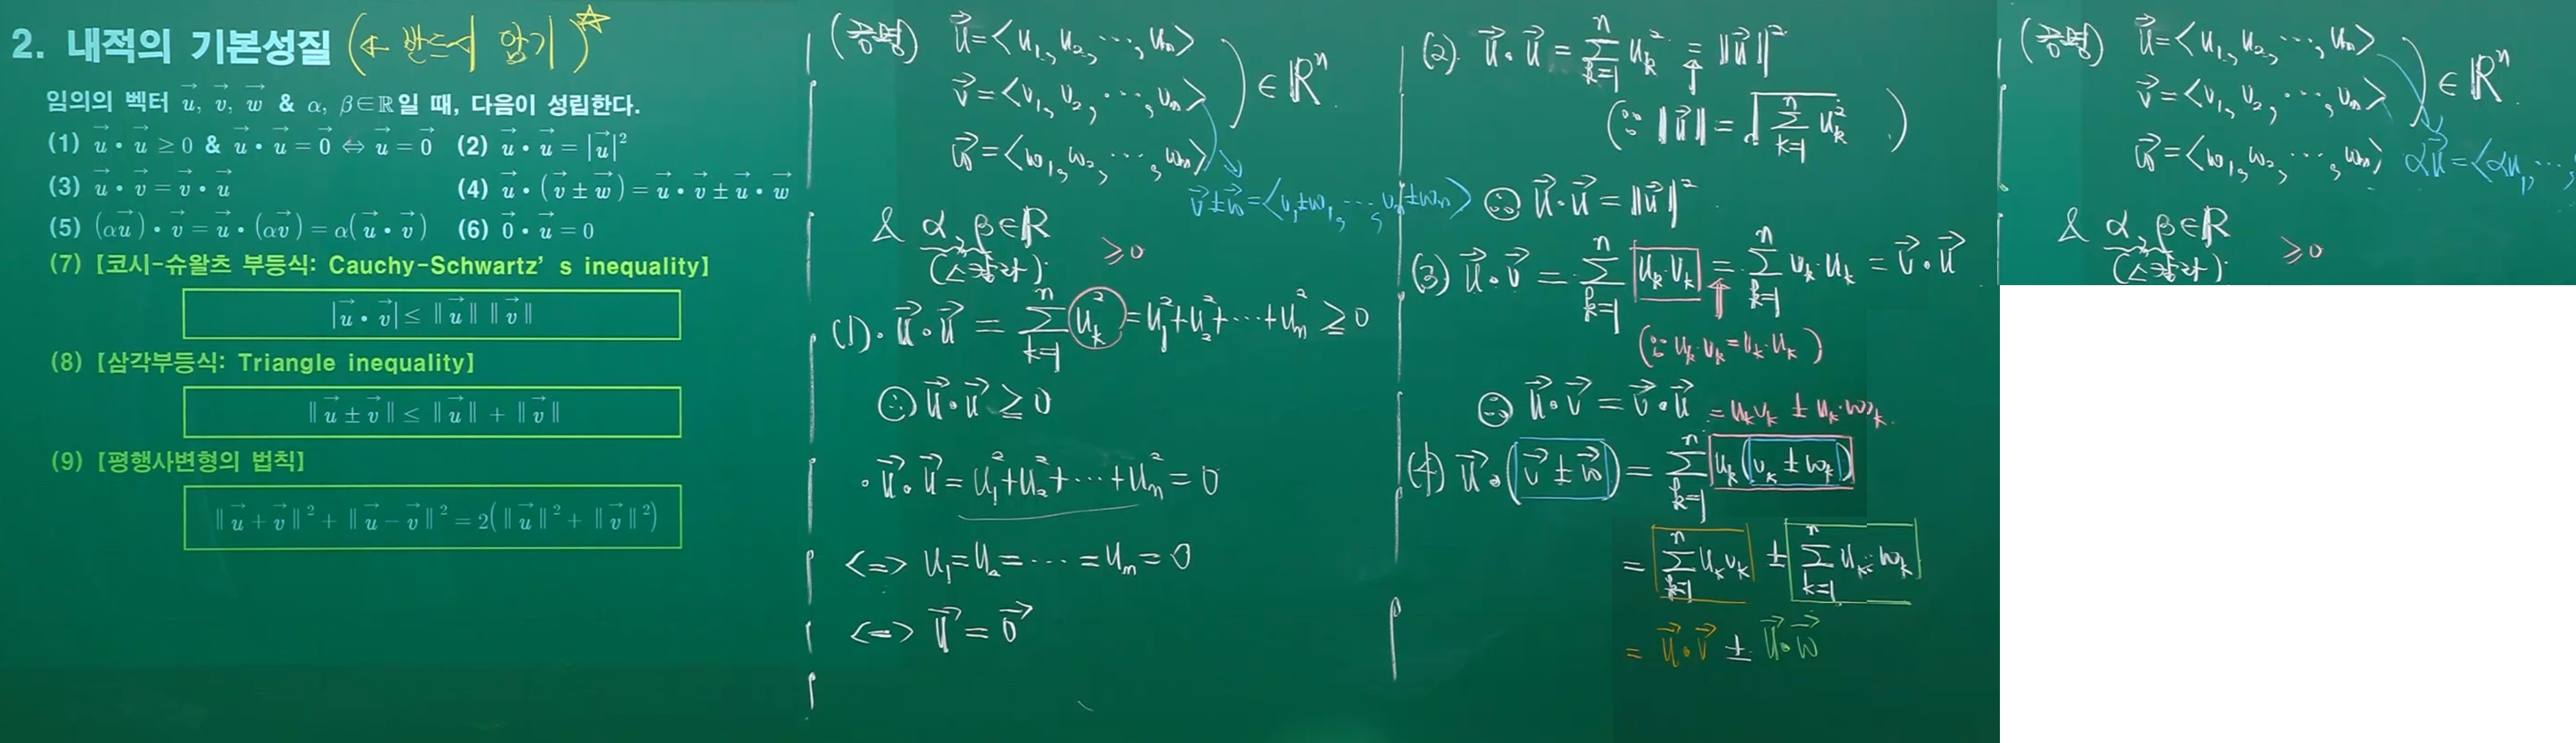 2. 내적의 기본성질 (← 반드시 암기)☆
임의의 벡터 $\vec{u}$, $\vec{v}$, $\vec{w}$ & α, β∈ℝ일 때, 다음이 성립한다.
(1) $\vec{u}$ • $\vec{u}$ ≥ 0 & $\vec{u}$ • $\vec{u}$ = $\vec{0}$ ⇔ $\vec{u}$ = $\vec{0}$ (2) $\vec{u}$ • $\vec{u}$ = |$\vec{u}$|²
(3) $\vec{u}$ • $\vec{v}$ = $\vec{v}$ • $\vec{u}$ (4) $\vec{u}$ • ($\vec{v}$ ± $\vec{w}$) = $\vec{u}$ • $\vec{v}$ ± $\vec{u}$ • $\vec{w}$
(5) ($\vec{αu}$) • $\vec{v}$ = $\vec{u}$ • ($\vec{αv}$) = α($\vec{u}$ • $\vec{v}$) (6) $\vec{0}$ • $\vec{u}$ = 0
(7) 【코시-슈왈츠 부등식: Cauchy-Schwartz’ s inequality】
|$\vec{u}$ • $\vec{v}$| ≤ ‖$\vec{u}$‖ ‖$\vec{v}$‖
(8) 【삼각부등식: Triangle inequality】
‖$\vec{u}$ ± $\vec{v}$‖ ≤ ‖$\vec{u}$‖ + ‖$\vec{v}$‖
(9) 【평행사변형의 법칙】
‖$\vec{u}$ + $\vec{v}$‖² + ‖$\vec{u}$ − $\vec{v}$‖² = 2(‖$\vec{u}$‖² + ‖$\vec{v}$‖²)
(증명) $\vec{u}$ = <u₁, u₂, ⋯, uₙ>
$\vec{v}$ = <v₁, v₂, ⋯, vₙ> ) ∈ ℝⁿ
$\vec{w}$ = <w₁, w₂, ⋯, wₙ>
$\vec{v}$ ± $\vec{w}$ = <v₁±w₁, ⋯, vₙ±wₙ>
& α, β ∈ ℝ
(스칼라) ≥0
(1). $\vec{u}$ • $\vec{u}$ = $\sum_{k=1}^{n}$ uₖ² = u₁² + u₂² + ⋯ + uₙ² ≥ 0
∴ $\vec{u}$ • $\vec{u}$ ≥ 0
• $\vec{u}$ • $\vec{u}$ = u₁² + u₂² + ⋯ + uₙ² = 0
<=> u₁ = u₂ = ⋯ = uₙ = 0
<=> $\vec{u}$ = $\vec{0}$
(2). $\vec{u}$ • $\vec{u}$ = $\sum_{k=1}^{n}$ uₖ² = ‖$\vec{u}$‖²
(∵ ‖$\vec{u}$‖ = $\sqrt{\sum_{k=1}^{n} u_k^2}$ )
∴ $\vec{u}$ • $\vec{u}$ = ‖$\vec{u}$‖²
(3) $\vec{u}$ • $\vec{v}$ = $\sum_{k=1}^{n}$ uₖ·vₖ = $\sum_{k=1}^{n}$ vₖ·uₖ = $\vec{v}$ • $\vec{u}$
(∵ uₖ·vₖ = vₖ·uₖ)
∴ $\vec{u}$ • $\vec{v}$ = $\vec{v}$ • $\vec{u}$
= uₖvₖ ± uₖ·wₖ
(4) $\vec{u}$ • ($\vec{v}$ ± $\vec{w}$) = $\sum_{k=1}^{n}$ uₖ(vₖ ± wₖ)
= $\sum_{k=1}^{n}$ uₖvₖ ± $\sum_{k=1}^{n}$ uₖ·wₖ
= $\vec{u}$ • $\vec{v}$ ± $\vec{u}$ • $\vec{w}$
(증명) $\vec{u}$ = <u₁, u₂, ⋯, uₙ>
$\vec{v}$ = <v₁, v₂, ⋯, vₙ> ) ∈ ℝⁿ
$\vec{w}$ = <w₁, w₂, ⋯, wₙ>
α$\vec{u}$ = <αu₁, ⋯,
& α, β ∈ ℝ
(스칼라) ≥0